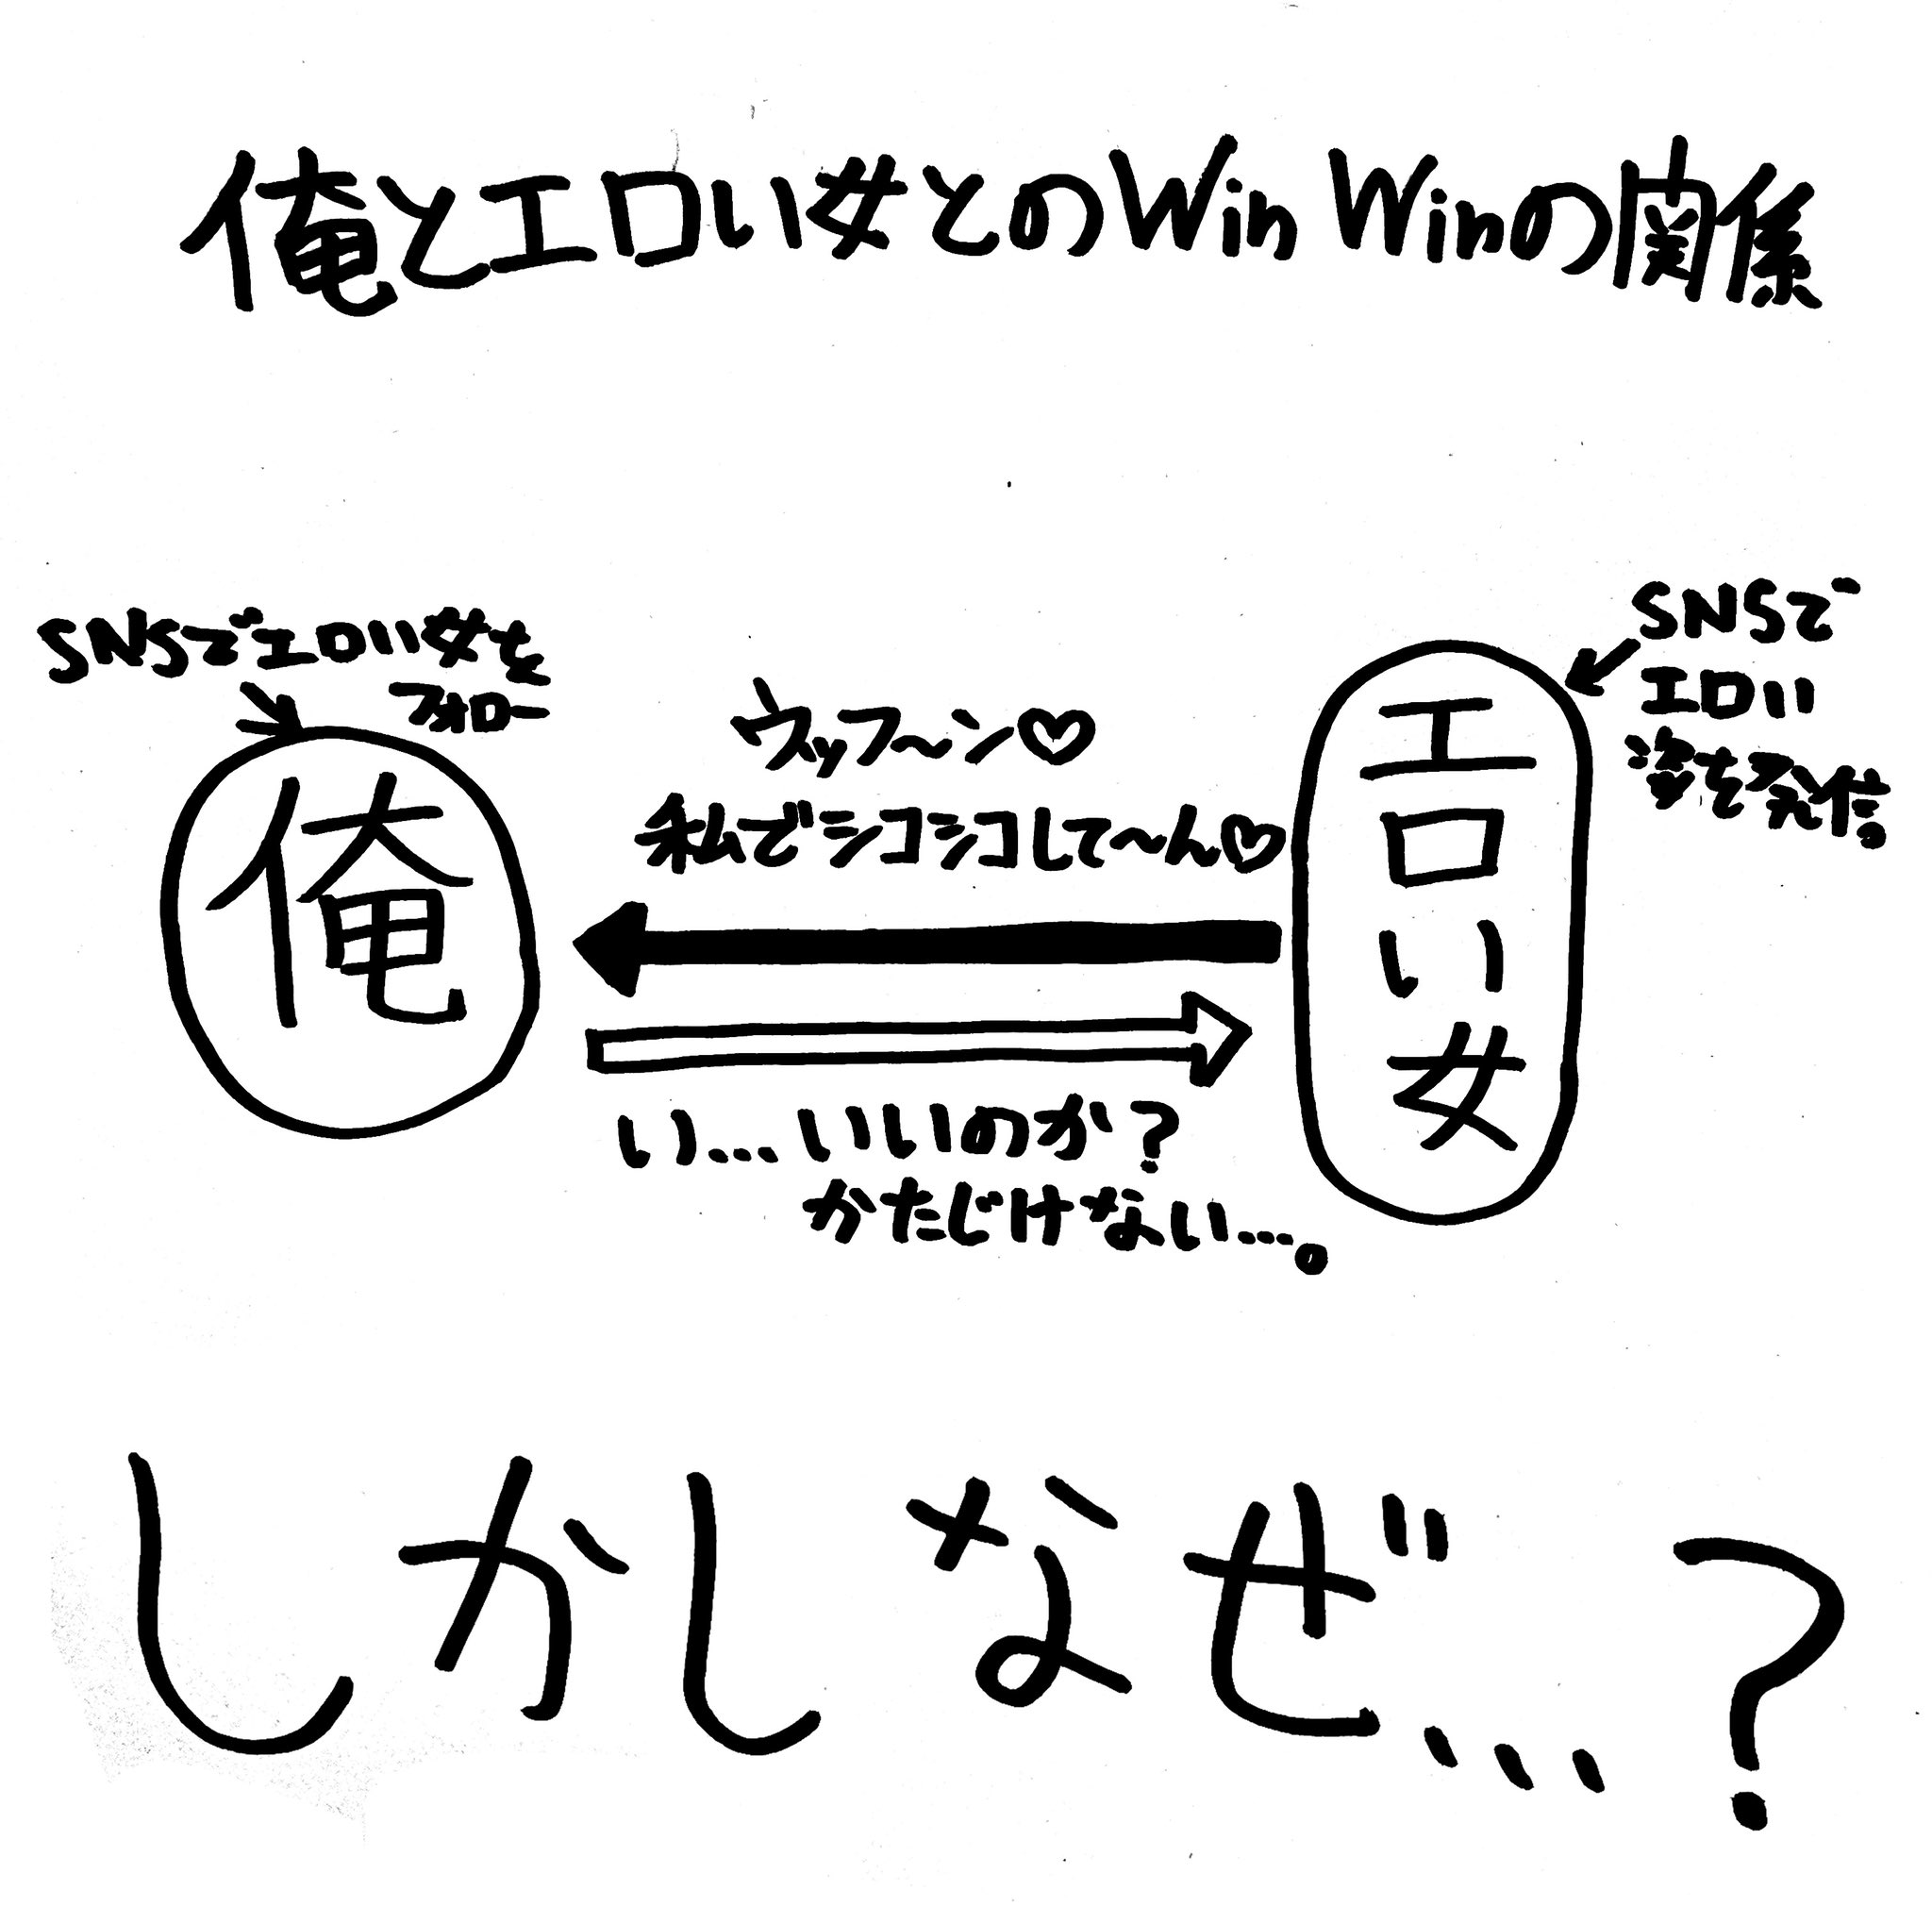 俺とエロい女とのWin Winの関係
SNSでエロい女を
フォロー
俺
ウッフ〜ン♡
私でシコシコして〜ん♡
SNSで
エロい
姿を発信
エロい女
い…いいのか?
かたじけない…。
しかしなぜ…?